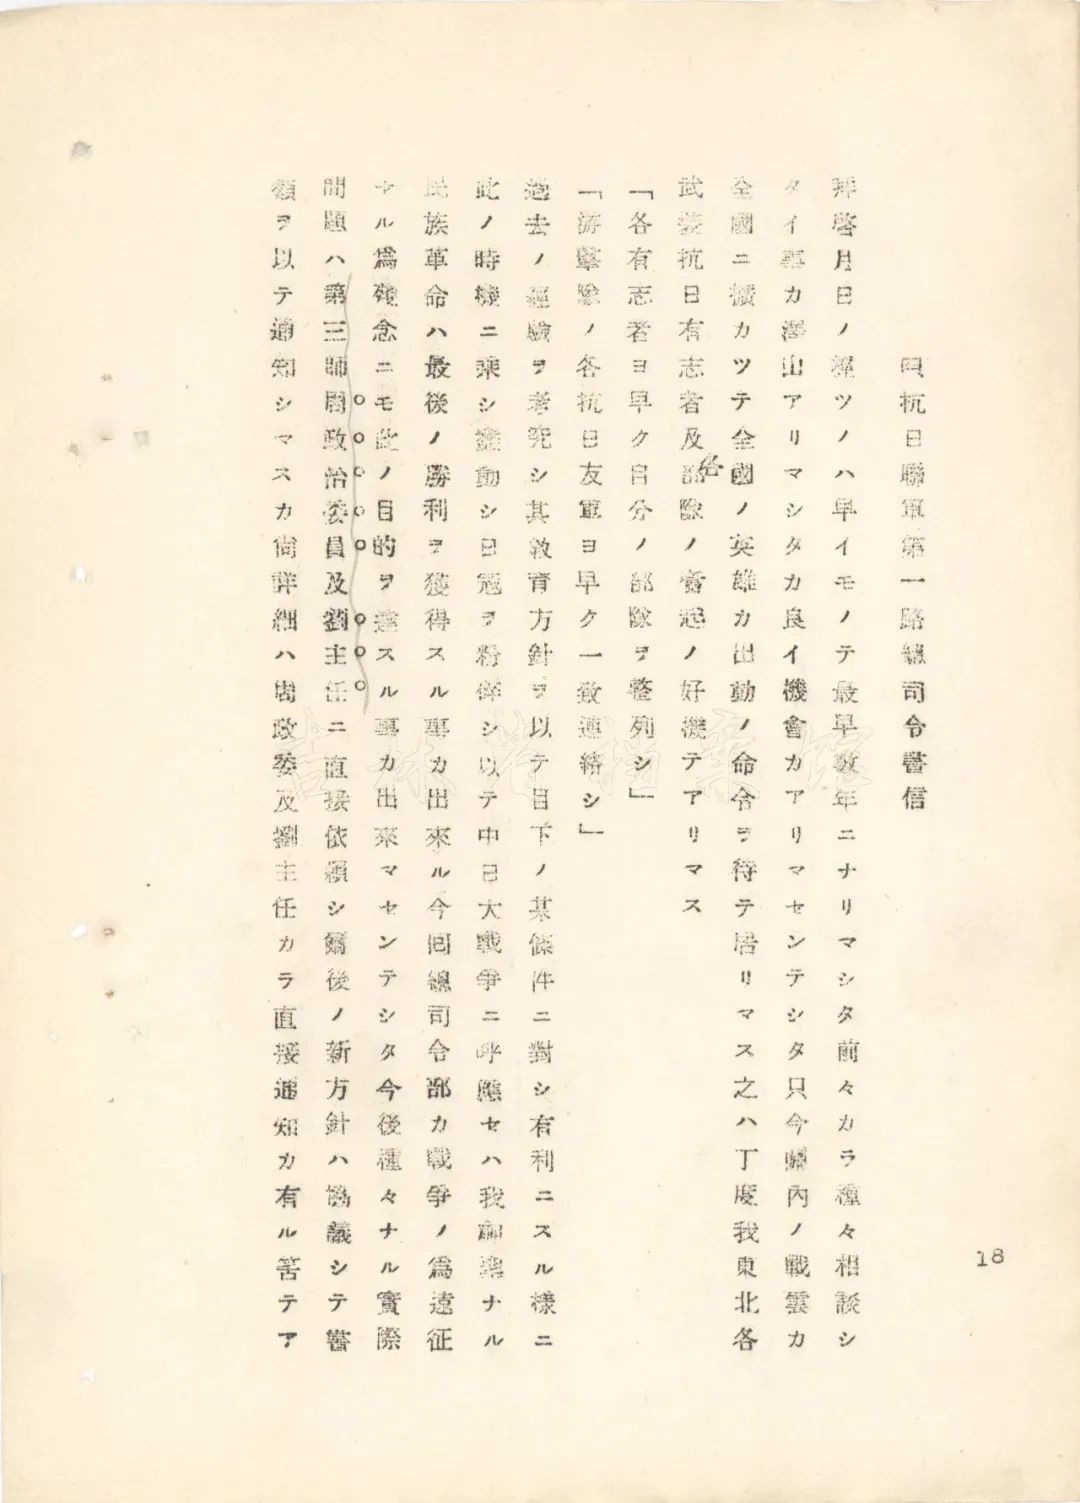 抗日聯軍第一路總司令書信
拜啓月日ノ經ツノハ早イモノテ最早數年ニナリマシタ前々カラ種々相談シ
タイ事カ澤山アリマシタカ良イ機會カアリマセンテシタ只今關內ノ戰雲カ
全國ニ擴カツテ全國ノ英雄カ出動ノ命令ヲ待テ居リマス之ハ丁度我東北各
武裝抗日有志者及各部隊ノ奮起ノ好機テアリマス
「各有志者ヨ早ク自分ノ部隊ヲ整列シ」
「游擊隊ノ各抗日友軍ヨ早ク一致連絡シ」
過去ノ經驗ヲ考究シ其敎育方針ヲ以テ目下ノ某條件ニ對シ有利ニスル樣ニ
此ノ時機ニ乘シ動シ日冠ヲ粉伴シ以テ中日大戰爭ニ呼應セハ我ナル
民族革命ハ最後ノ勝利ヲ獲得スル事カ出來ル今回總司令部カ戰爭ノ爲遠征
セル爲殘念ニモ此ノ目的ヲ達スル事カ出來マセンテシタ今後種々ナル實際
問題ハ第三師周政治委員及劉主任ニ直接依賴シ爾後ノ新方針ハ協議シテ書
類ヲ以テ通知シマスカ尙詳細ハ周政委及劉主任カラ直接通知カ有ル筈テア
18
吉林省档案馆